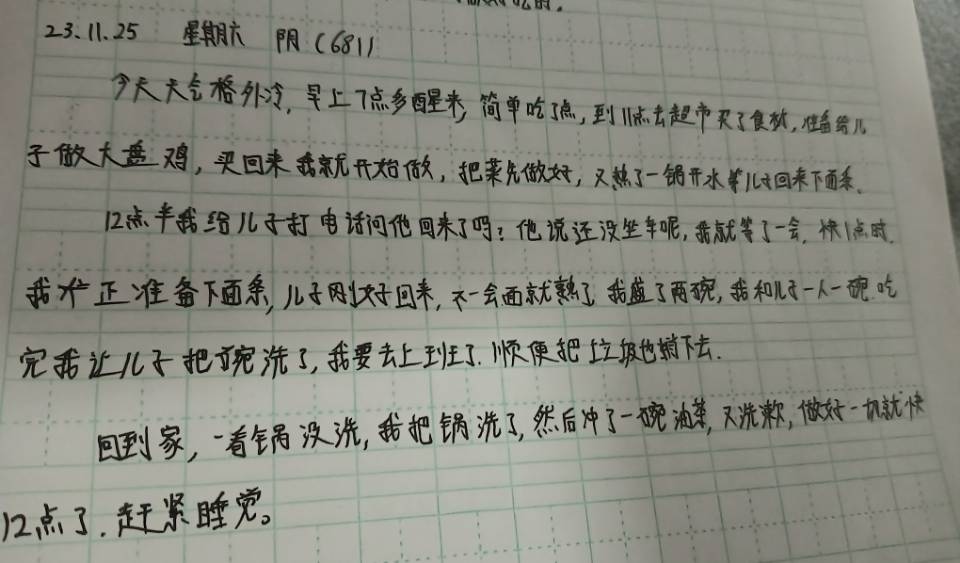 23.11.25 星期六 阴 (681)
今天天气格外冷,早上7点多醒来,简单吃了点,到11点去超市买了食材,准备给儿
子做大盘鸡,买回来我就开始做,把菜先做好,又热了一锅开水等儿子回来下面条。
12点半我给儿子打电话问他回来了吗?他说还没坐车呢,我就等了一会,快1点时,
我才正准备下面条,儿子刚好回来,不一会面就熟了,我盛了两碗,我和儿子一人一碗,吃
完我让儿子把碗洗了,我要去上班了.顺便把垃圾也捎下去.
回到家,一看锅没洗,我把锅洗了,然后冲了一碗油茶,又洗漱,做好一切就快
12点了.赶紧睡觉。